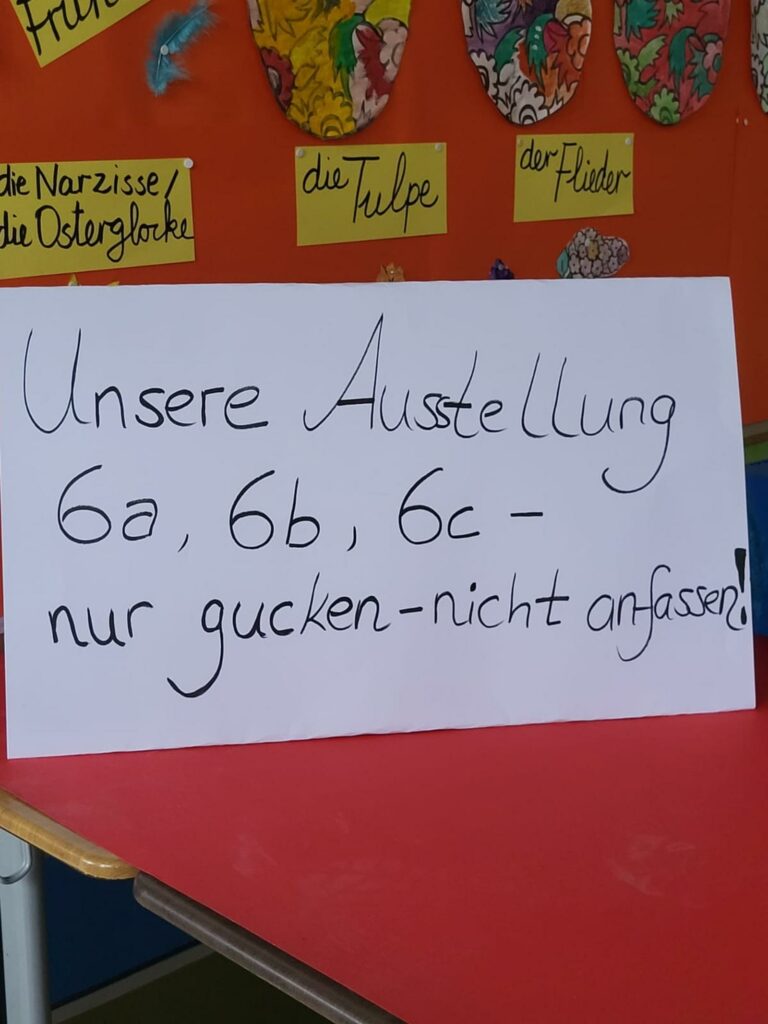 die Narzisse/
die Osterglocke
die Tulpe
der Flieder
Unsere Ausstellung
6a, 6b, 6c -
nur gucken - nicht anfassen!